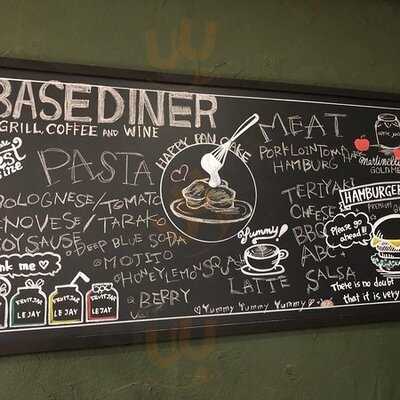 BASE DINER
GRILL, COFFEE AND WINE
PASTA
BOLOGNESE/TOMATO
GENOVESE/TARAKO
SOY SAUCE
DEEP BLUE SODA
@MOJITO
@HONEY LEMON SQUA
@BERRY
HAPPY PAN CAKE
Yummy
LATTE
♡YUMMY YUMMY YUMMY♡
FRUIT JAR
LE JAY
FRUIT JAR
LE JAY
FRUIT JAR
LE JAY
FRUIT JAR
LE JAY
MEAT
PORK LOIN TOMA
HAMBURG
TERIYAKI
CHEESE
BBQ
ABC
SALSA
Martinelli
GOLD ME
HAMBURGER
PREMIUM
Please go
ahead!!
There is no doubt
that it is very